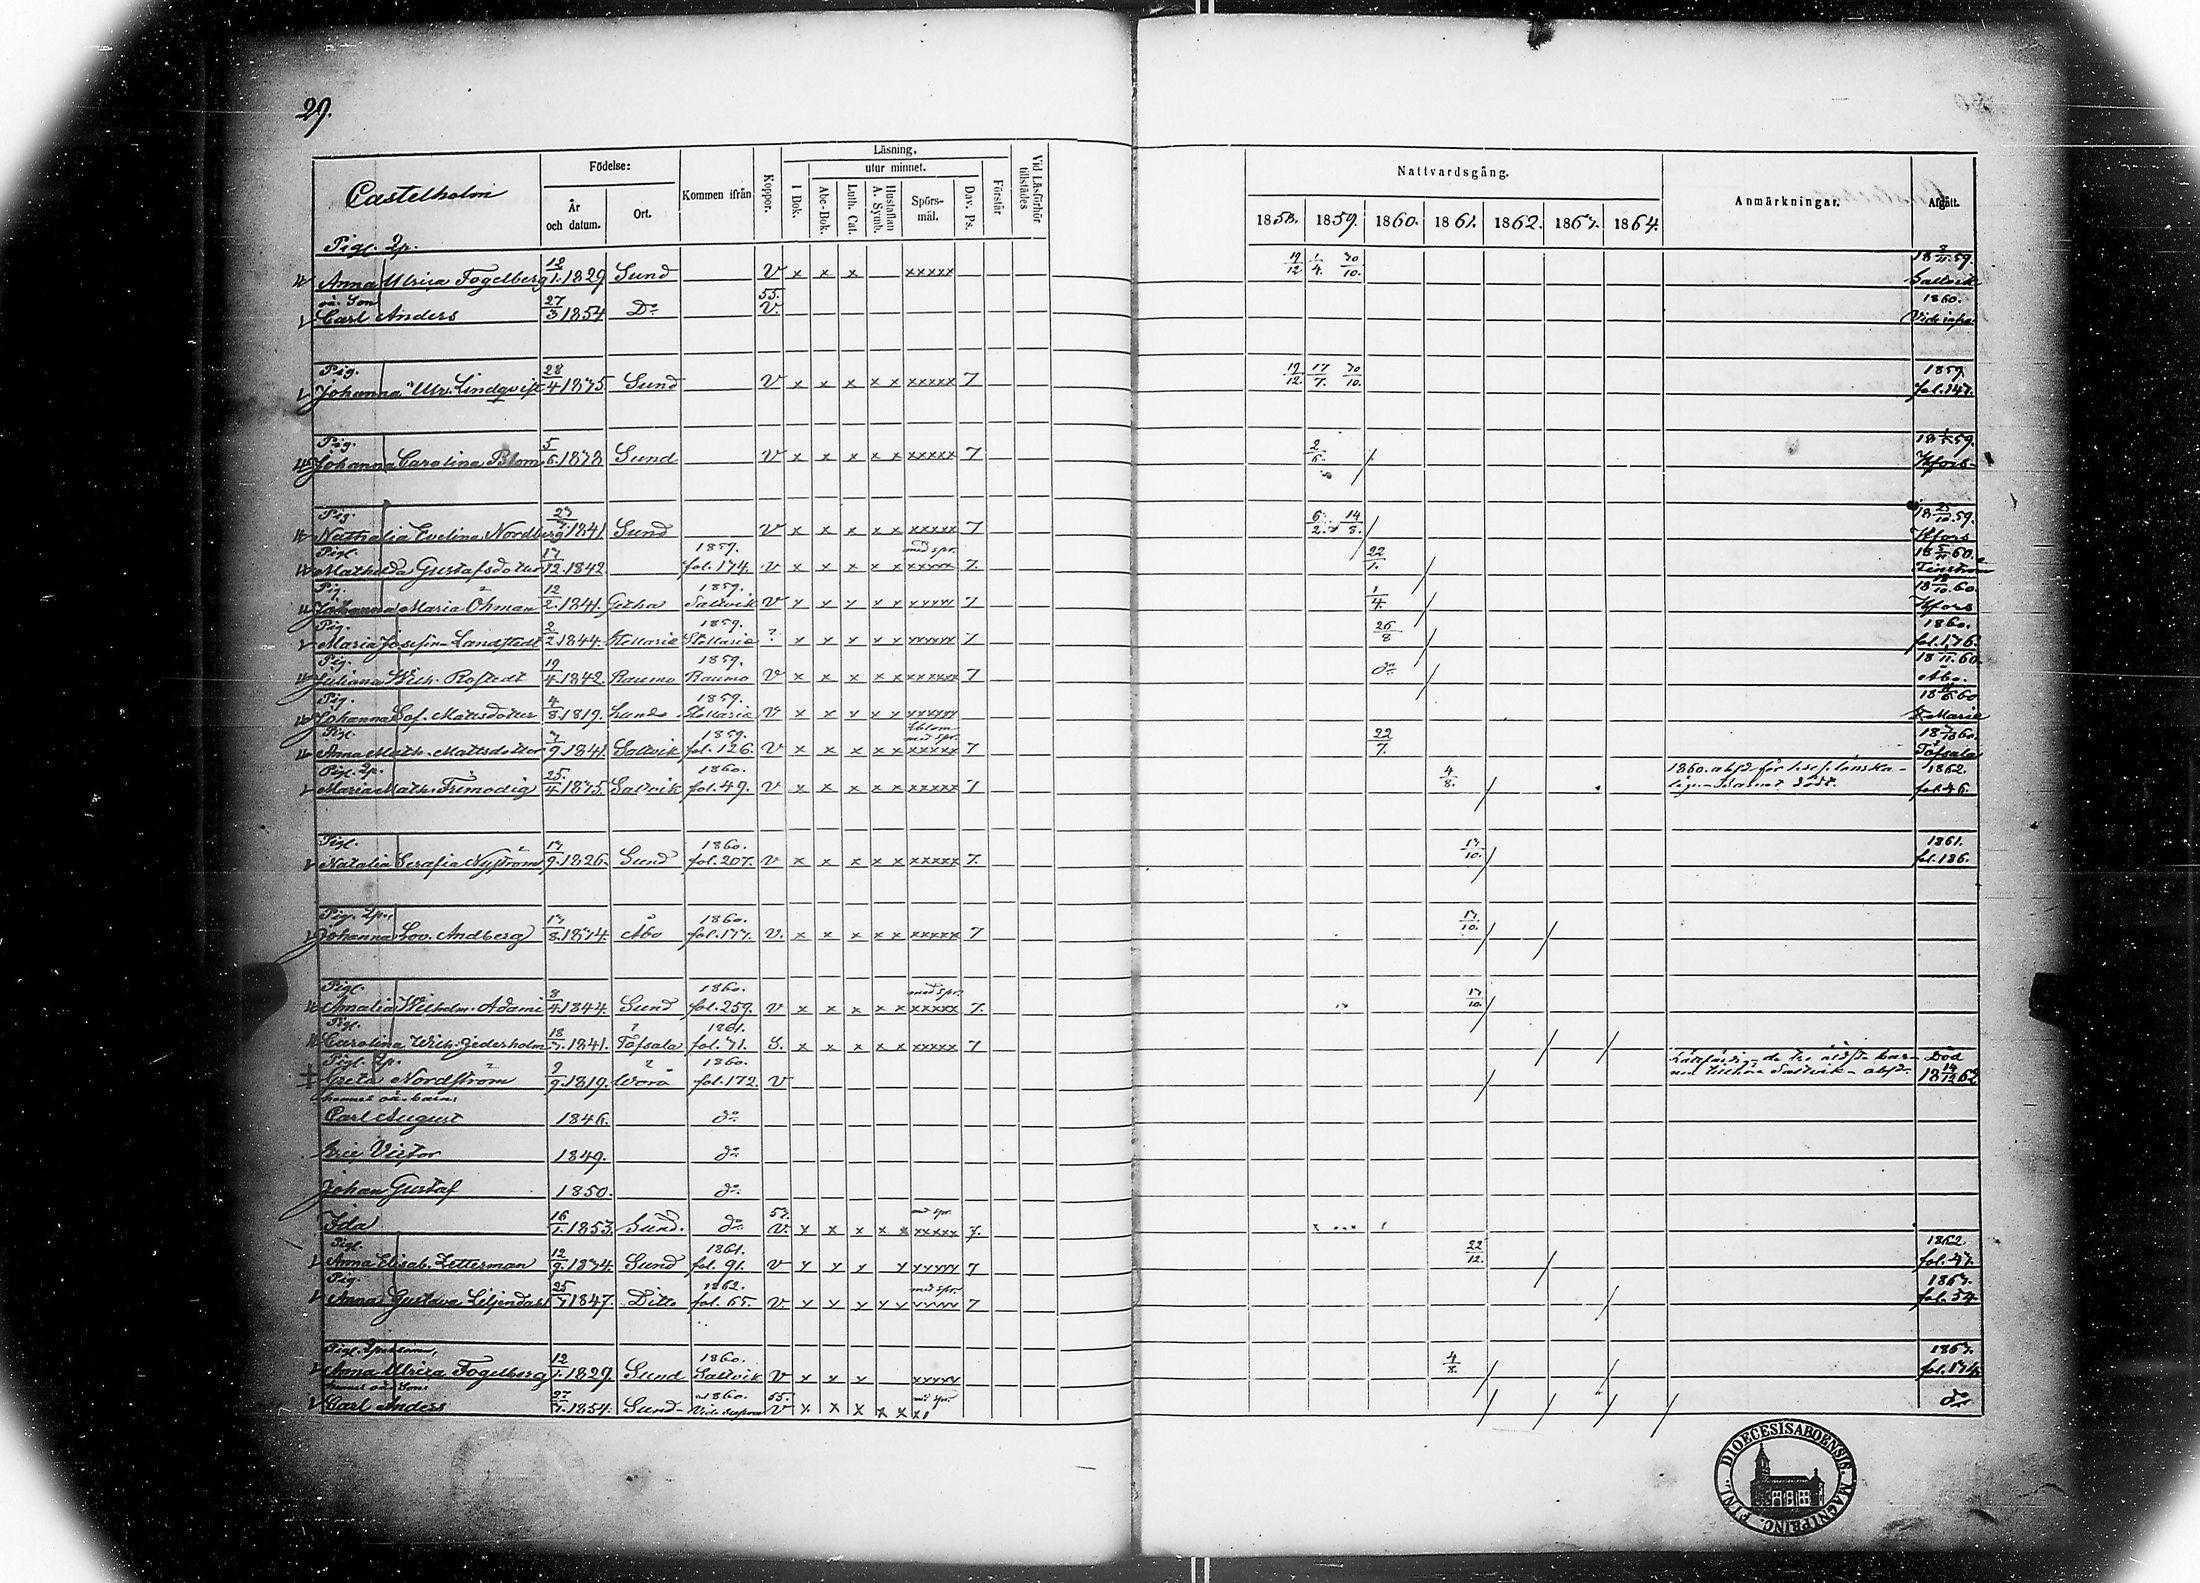 29.
Castelholm
Födelse:
År och datum.
Ort.
Kommen ifrån
Koppor.
Läsning,
utur minnet.
I Bok.
Abc-Bok.
Luth. Cat.
Hustaflan A. Symb.
Spörs-mål.
Dav. Ps.
Förstår
Vid Läsförhör tillstädes
Nattvardsgång.
1858. 1859. 1860. 1861. 1862. 1863. 1864.
Anmärkningar.
Afgått.
Pigl. 2p.
Anna Ulrica Fogelberg 12/1. 1829 Sund V x x x xxxxx 19/12 1/4. 30/10. 18 59. Saltvik
oä. Son
Carl Anders 27/3 1854 Do 55. V. 1860. Vide infra
Pig.
Johanna Ulr. Lindqvist 28/4 1835 Sund V x x x x x xxxxx 7 19/12. 17/7. 30/10. 1859. fol. 147.
Pig.
Johanna Carolina Blom 5/ 1838 Sund V x x x x x xxxxx 7 18 59. Hfors
Pig.
Nathalia Evelina Nordberg 1841. Sund V x x x x x xxxxx 7 6/2. 14/8. 18 59. Hfors
Pigl. 1859. med spr.
Mathilda Gustafsdotter 12. 1842. fol. 174. v x x x x x xxxxx 7. 22/1. 18 60.
Pig. 1859.
Johanna Maria Öhman 12/2. 1841. Getha Saltvik V x x x x x xxxxx 7 1/4. 18 60. Hfors
Pig. 1859.
Maria Josefin. Landstedt 2/2. 1844. StMarie StMarie ? x x x x x xxxxx 7 26/8 1860. fol. 176.
Pig. 1859.
Juliana Wilh. Rostedt 19/4. 1842. Raumo Raumo V x x x x x xxxxx 7 do 18 60. Åbo.
Pig. 1859.
Johanna Sof. Mattsdotter 4/8. 1819. StMarie V x x x x x xxxxx 18 60 StMarie
Pigl. 1859. med spr.
Anna Math. Mattsdotter 9. 1841. Saltvik fol. 126. V x x x x x xxxxx 7 22/7. 18 60. Töfsala
Pigl. 2p. 1860.
Maria Math. Frimodig 25/4 1835 Saltvik fol. 49. V x x x x x xxxxx 7 4/8. 1860. 1862. fol. 46.
Pigl. 1860.
Natalia Serafia Nyström 9. 1826. Sund fol. 207. v x x x x x xxxxx 7. 10. 1861. fol. 186.
Pig. 2p. 1860.
Johanna Lov. Andberg 8. 1834. Åbo fol. 177. v. x x x x x xxxxx 7 10.
Pigl. 1860. med spr.
Amalia Wilhelm. Adami 8/4. 1844. Sund fol. 259. v x x x x x xxxxx 7. 10.
Pigl. 1861.
Carolina Wilh. Jederholm 18/ 1841. Töfsala fol. 71. S. x x x x x xxxxx 7
Pigl. 2p. 1860.
Greta Nordström 9/9. 1819. Wörå fol. 172. V Död 18 14/12 62
hennes oä. barn:
Carl August 1846. do
Eric Victor 1849. do
Johan Gustaf 1850. do
Ida 16/1. 1853. Sund. do V. x x x x x xxxxx 7. med spr.
Pigl. 1861.
Anna Elisab. Zetterman 12/9. 1834. Sund fol. 91. V x x x x xxxxx 7 22/12. 1862 fol. 47.
Pig. 1862. med spr.
Anna Gustava Liljendahl 25/ 1847. Ditto fol. 65. V. x x x x x xxxxx 7 1863. fol. 54.
Pigl. 1860.
Anna Ulrica Fogelberg 12/1. 1829. Sund Saltvik V x x x xxxxx 4/8. 1863. fol. 174.
hennes oä. Son:
Carl Anders 27/3. 1854. Sund 1860. Vide supra 55. V x x x x x med spr. do
DIOECESIS ABOENSIS. MAGNI PRINC. FINL.